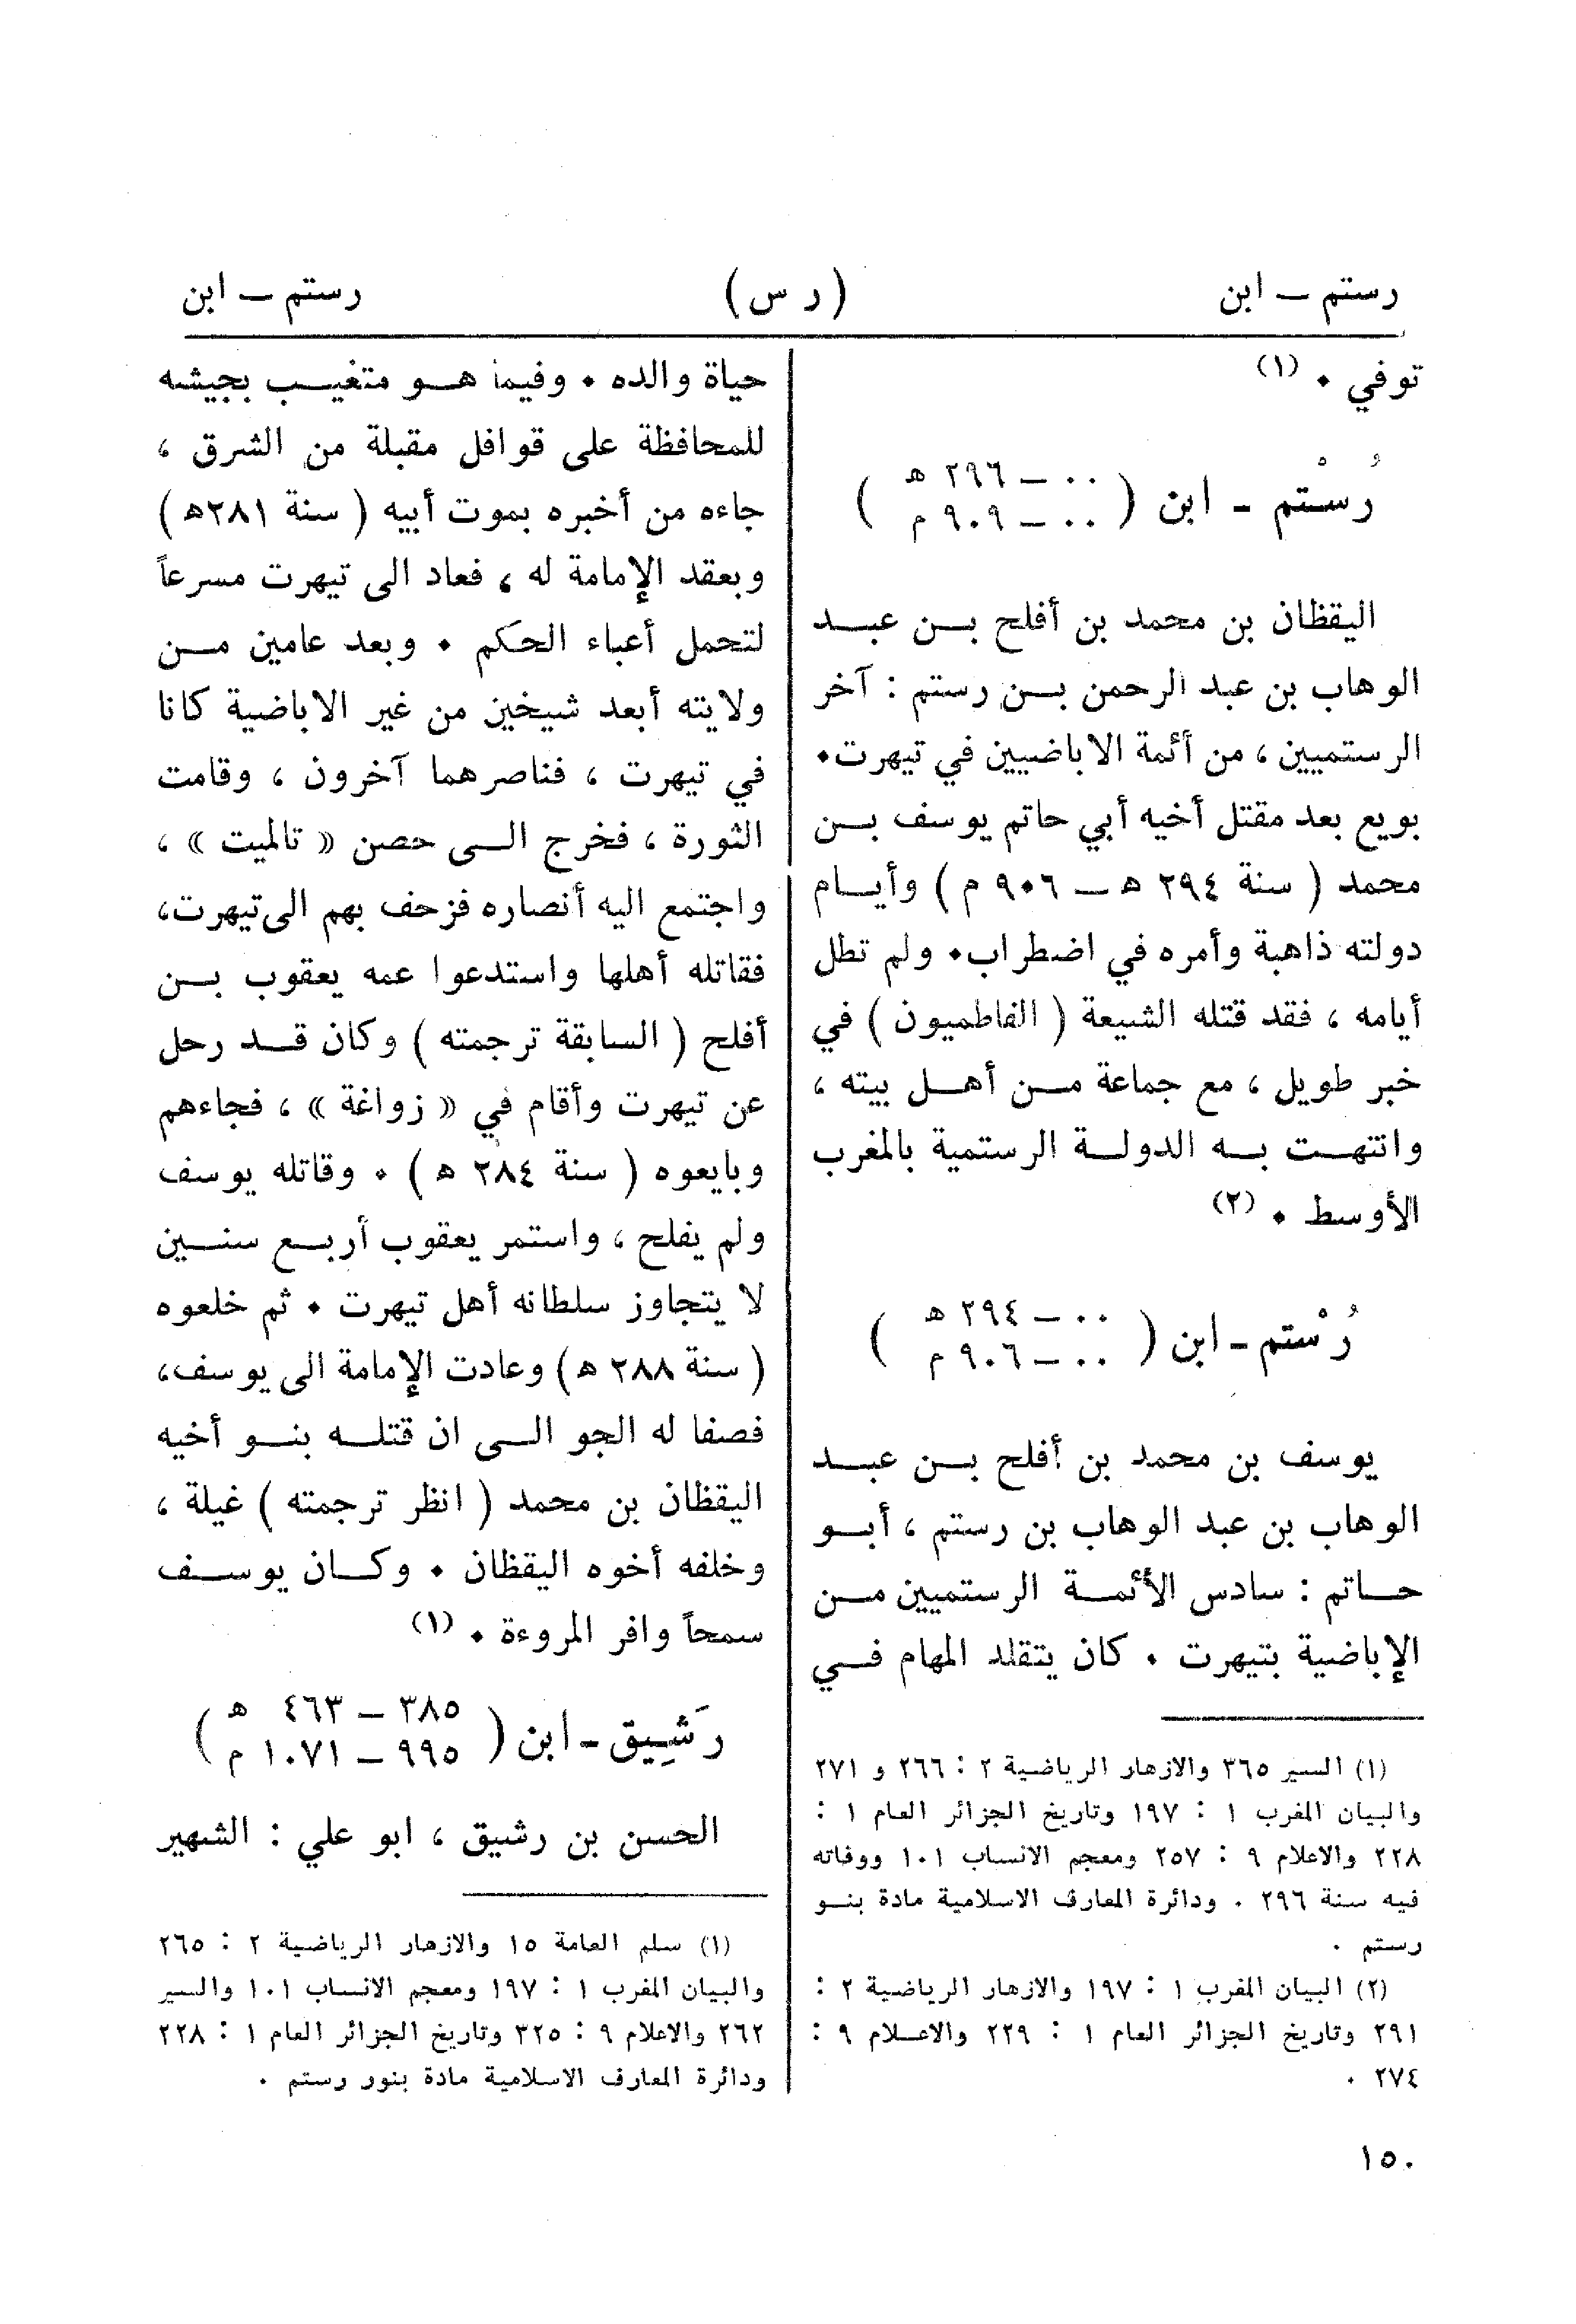 رستم – ابن
(ر س)
رستم – ابن
توفي . (١)
رُسْتم - ابن ( ٠٠ – ٢٩٦ ه
٠٠ – ٩٠٩ م )
اليقظان بن محمد بن أفلح بن عبد
الوهاب بن عبد الرحمن بن رستم : آخر
الرستميين ، من أئمة الاباضيين في تيهرت.
بويع بعد مقتل أخيه أبي حاتم يوسف بن
محمد ( سنة ٢٩٤ ه – ٩٠٦ م ) وأيام
دولته ذاهبة وأمره في اضطراب. ولم تطل
أيامه ، فقد قتله الشيعة ( الفاطميون ) في
خبر طويل ، مع جماعة من أهل بيته ،
وانتهت به الدولة الرستمية بالمغرب
الأوسط . (٢)
رُسْتم - ابن ( ٠٠ – ٢٩٤ ه
٠٠ – ٩٠٦ م )
يوسف بن محمد بن أفلح بن عبد
الوهاب بن عبد الوهاب بن رستم ، أبو
حاتم : سادس الأئمة الرستميين من
الإباضية بتيهرت . كان يتقلد المهام في
(١) السير ٣٦٥ والازهار الرياضية ٢ : ٢٦٦ و ٢٧١
والبيان المغرب ١ : ١٩٧ وتاريخ الجزائر العام ١ :
٢٢٨ والاعلام ٩ : ٢٥٧ ومعجم الانساب ١٠١ ووفاته
فيه سنة ٢٩٦ . ودائرة المعارف الاسلامية مادة بنو
رستم .
(٢) البيان المغرب ١ : ١٩٧ والازهار الرياضية ٢ :
٢٩١ وتاريخ الجزائر العام ١ : ٢٢٩ والاعلام ٩ :
٢٧٤ .
حياة والده . وفيما هو متغيب بجيشه
للمحافظة على قوافل مقبلة من الشرق ،
جاءه من أخبره بموت أبيه ( سنة ٢٨١ه )
وبعقد الإمامة له ، فعاد الى تيهرت مسرعاً
لتحمل أعباء الحكم . وبعد عامين من
ولايته أبعد شيخين من غير الاباضية كانا
في تيهرت ، فناصرهما آخرون ، وقامت
الثورة ، فخرج الى حصن « تالميت » ،
واجتمع اليه أنصاره فزحف بهم الى تيهرت،
فقاتله أهلها واستدعوا عمه يعقوب بن
أفلح ( السابقة ترجمته ) وكان قد رحل
عن تيهرت وأقام في « زواغة » ، فجاءهم
وبايعوه ( سنة ٢٨٤ ه ) . وقاتله يوسف
ولم يفلح ، واستمر يعقوب أربع سنين
لا يتجاوز سلطانه أهل تيهرت . ثم خلعوه
( سنة ٢٨٨ ه ) وعادت الإمامة الى يوسف،
فصفا له الجو الى ان قتله بنو أخيه
اليقظان بن محمد ( انظر ترجمته ) غيلة ،
وخلفه أخوه اليقظان . وكان يوسف
سمحاً وافر المروءة . (١)
رَشِيق - ابن ( ٣٨٥ – ٤٦٣ ه
٩٩٥ – ١٠٧١ م )
الحسن بن رشيق ، ابو علي : الشهير
(١) سلم العامة ١٥ والازهار الرياضية ٢ : ٢٦٥
والبيان المغرب ١ : ١٩٧ ومعجم الانساب ١٠١ والسير
٢٦٢ والاعلام ٩ : ٣٢٥ وتاريخ الجزائر العام ١ : ٢٢٨
ودائرة المعارف الاسلامية مادة بنور رستم .
١٥٠